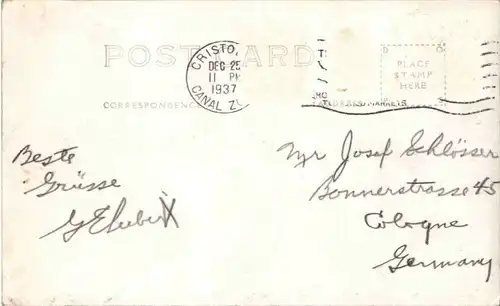 POST CARD
CRISTO
DEC 25
11 PM
1937
CANAL ZO
PLACE
STAMP
HERE
CORRESPONDENCE
Beste
Grüsse
Mr Josef Schlösser
Bonnerstrasse 45
Cologne
Germany